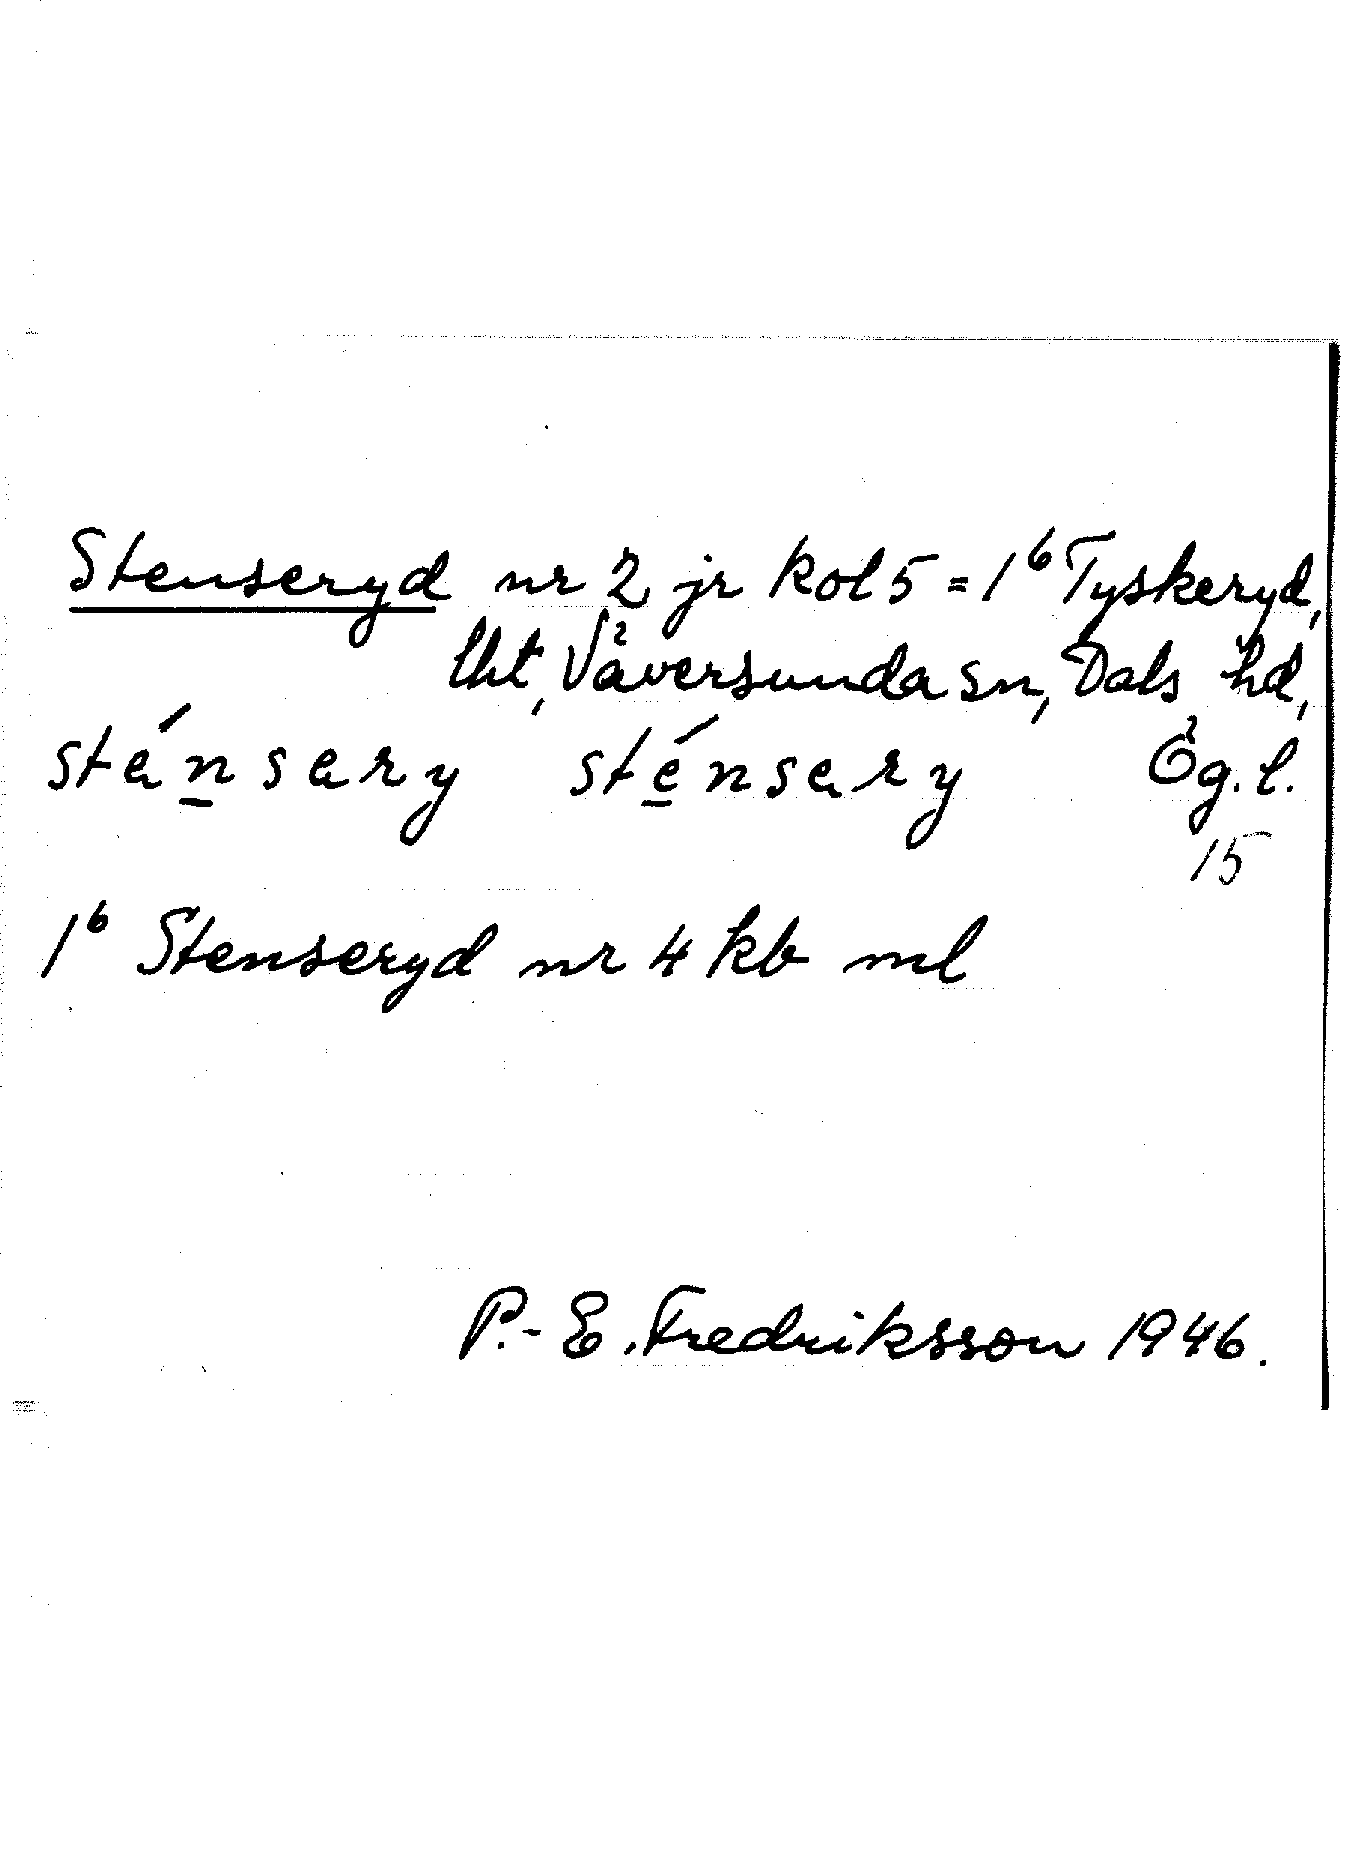 Stenseryd nr 2 jr kol 5 = 1⁶ Tyskeryd,
lht, Väversunda sn, Dals hd,
sténsary sténsary Ög. l.
15
1⁶ Stenseryd nr 4 kb ml
P.-E. Fredriksson 1946.